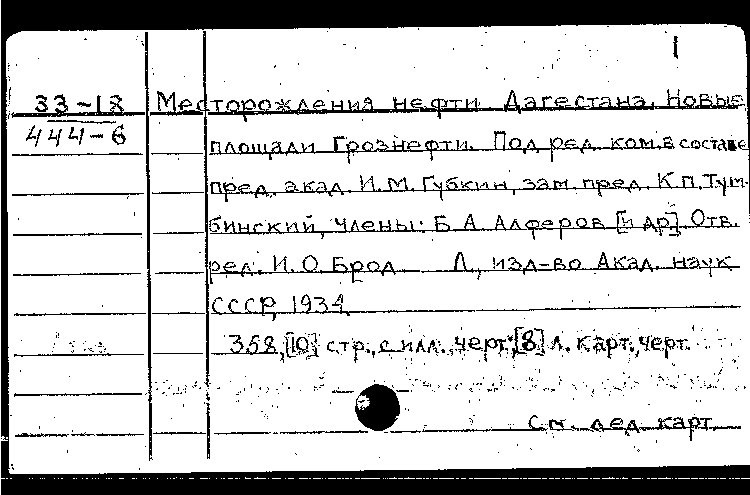 1
33-18 Месторождения нефти Дагестана. Новые
444-6 площади Грознефти. Под ред. ком. в составе
пред. акад. И. М. Губкин, зам. пред. К. П. Тум-
бинский, члены: Б. А. Алферов [и др]. Отв.
ред. И. О. Брод Л., изд-во Акад. наук
СССР, 1934.
358, [10] стр., с илл. черт., [8] л. карт., черт.
См. лед. карт.